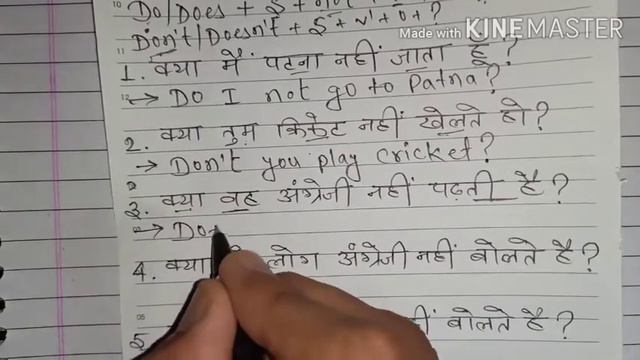 Do/Does + S + not
Made with KINEMASTER
Don't/Doesn't + S + v' + o + ?
1. क्या मैं पटना नहीं जाता हूँ ?
→ Do I not go to Patna?
2. क्या तुम क्रिकेट नहीं खेलते हो ?
→ Don't you play cricket?
3. क्या वह अंग्रेजी नहीं पढ़ती है ?
→ Do
4. क्या लोग अंग्रेजी नहीं बोलते है ?
5. बोलते है ?